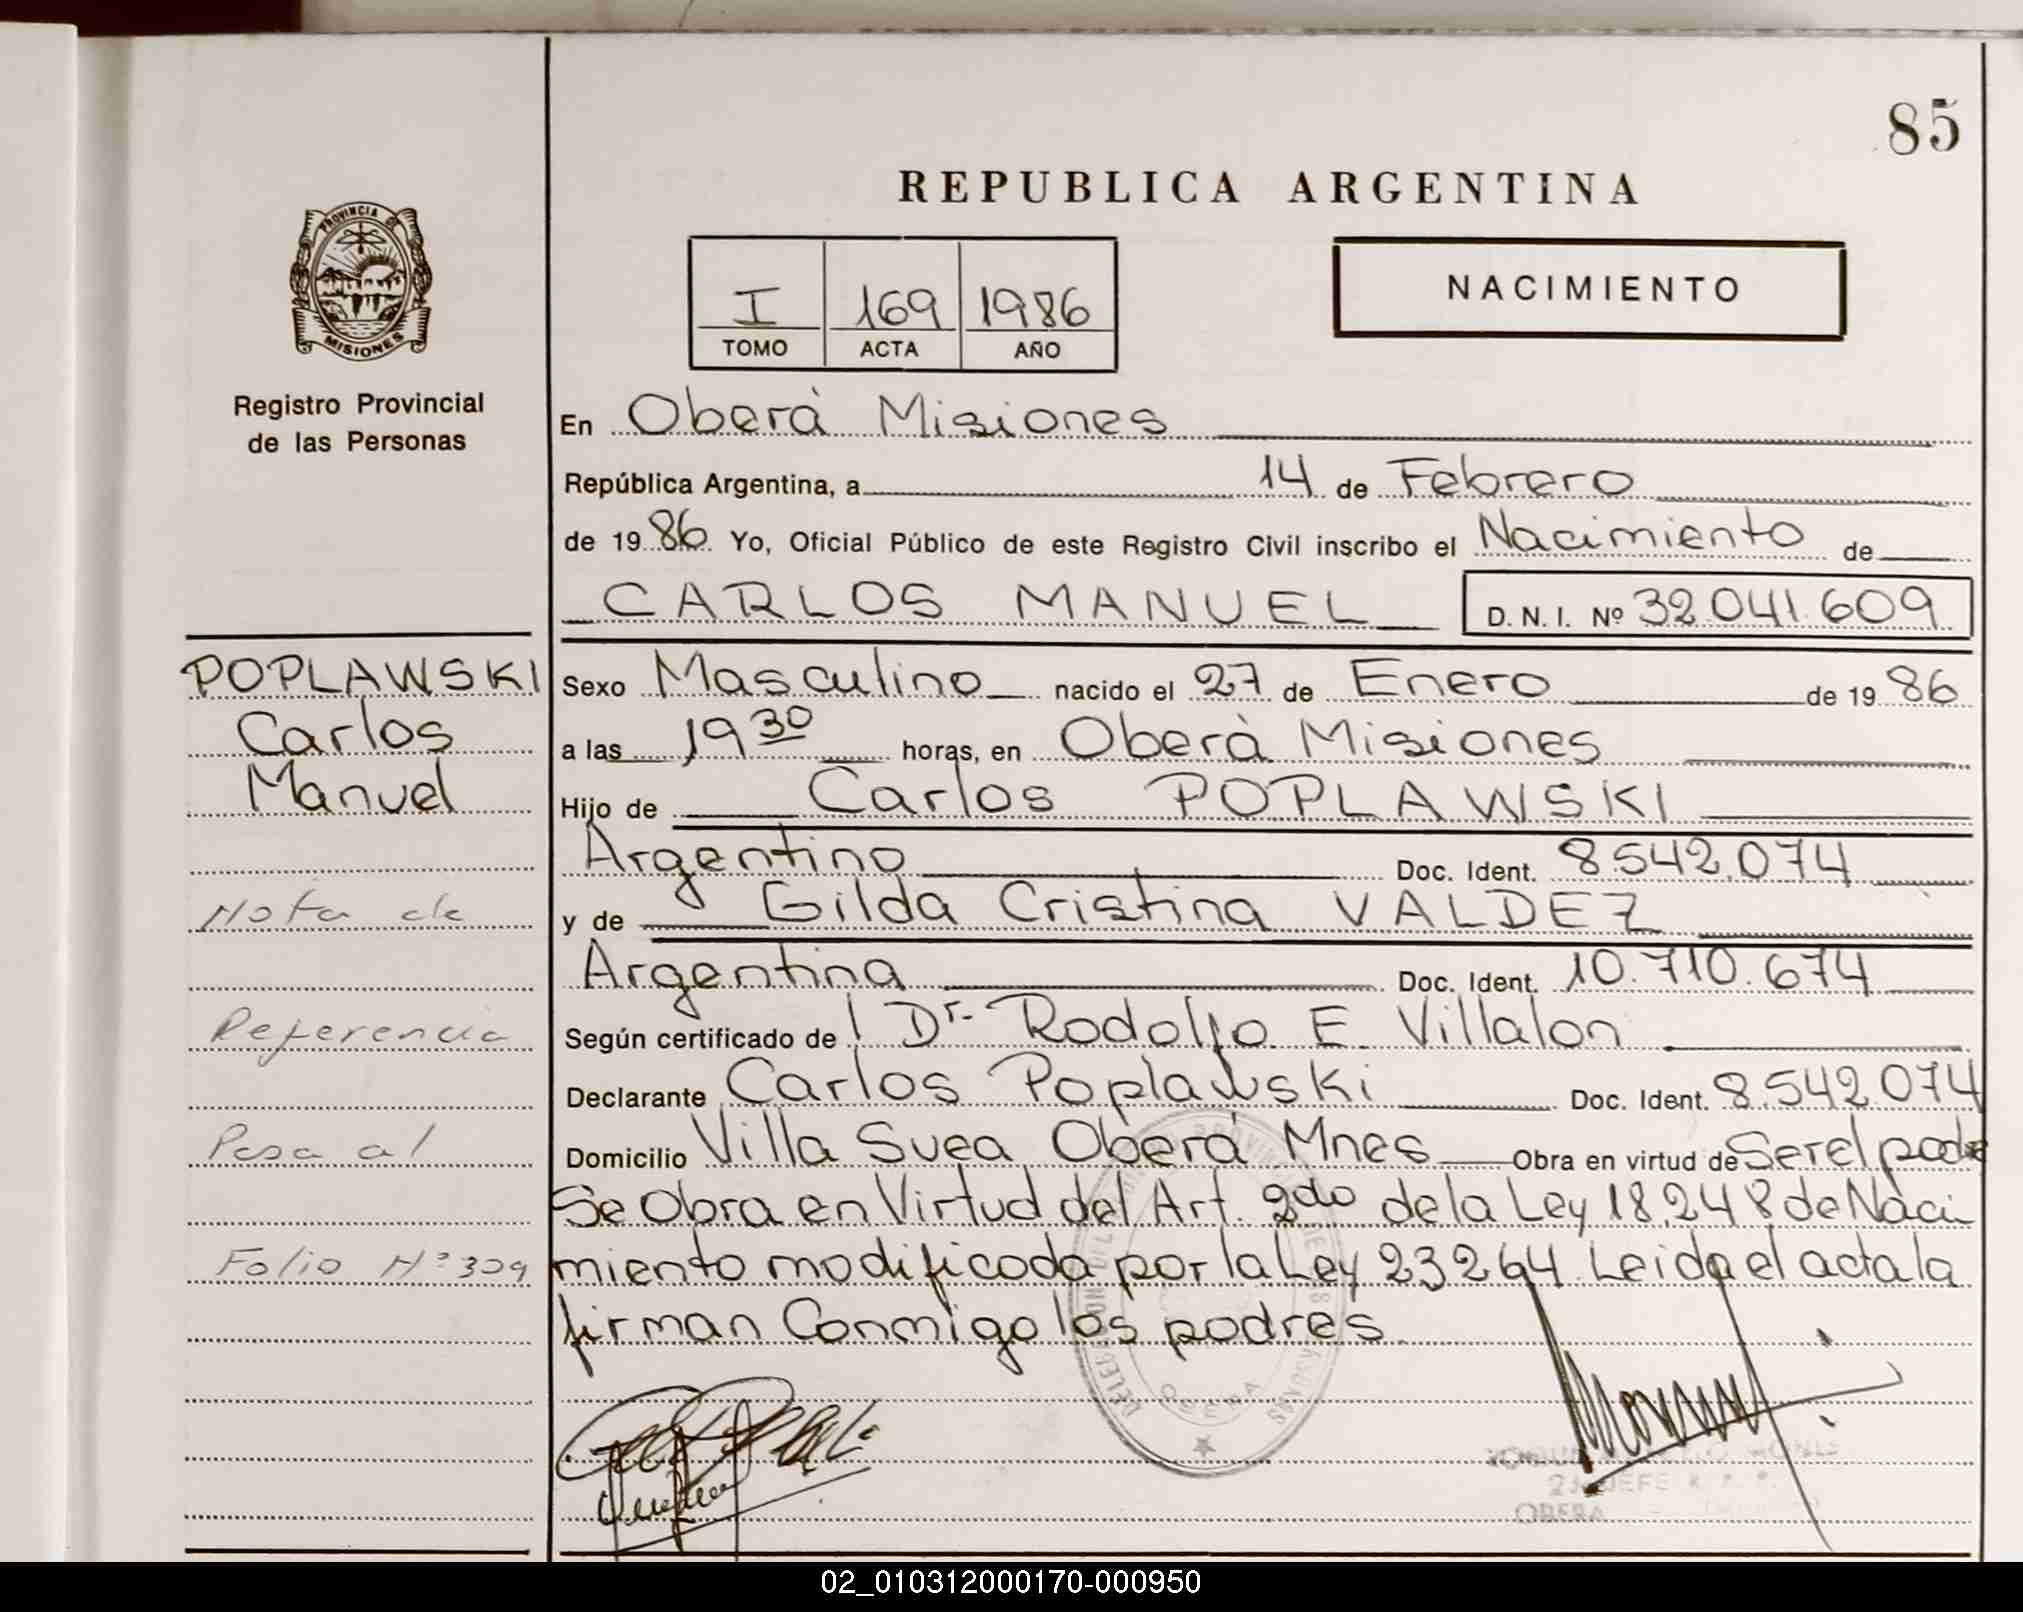 85
REPUBLICA ARGENTINA
PROVINCIA DE
MISIONES
Registro Provincial
de las Personas
I 169 1986
TOMO ACTA AÑO
NACIMIENTO
En Oberá Misiones
República Argentina, a 14 de Febrero
de 19 86 Yo, Oficial Público de este Registro Civil inscribo el Nacimiento de
CARLOS MANUEL D. N. I. Nº 32.041.609
POPLAWSKI
Carlos
Manuel
Nota de
Referencia
Pasa al
Folio Nº 309
Sexo Masculino nacido el 27 de Enero de 19 86
a las 19 30 horas, en Oberá Misiones
Hijo de Carlos POPLAWSKI
Argentino Doc. Ident. 8.542.074
y de Gilda Cristina VALDEZ
Argentina Doc. Ident. 10.710.674
Según certificado de l Dr. Rodolfo E. Villalon
Declarante Carlos Poplawski Doc. Ident. 8.542.074
Domicilio Villa Svea Oberá Mnes Obra en virtud de Ser el padre
Se Obra en Virtud del Art. 2do de la Ley 18.248 de Naci
miento modificada por la Ley 23264. Leida el acta la
firman Conmigo los padres
OBERA
OBERA
02_010312000170-000950